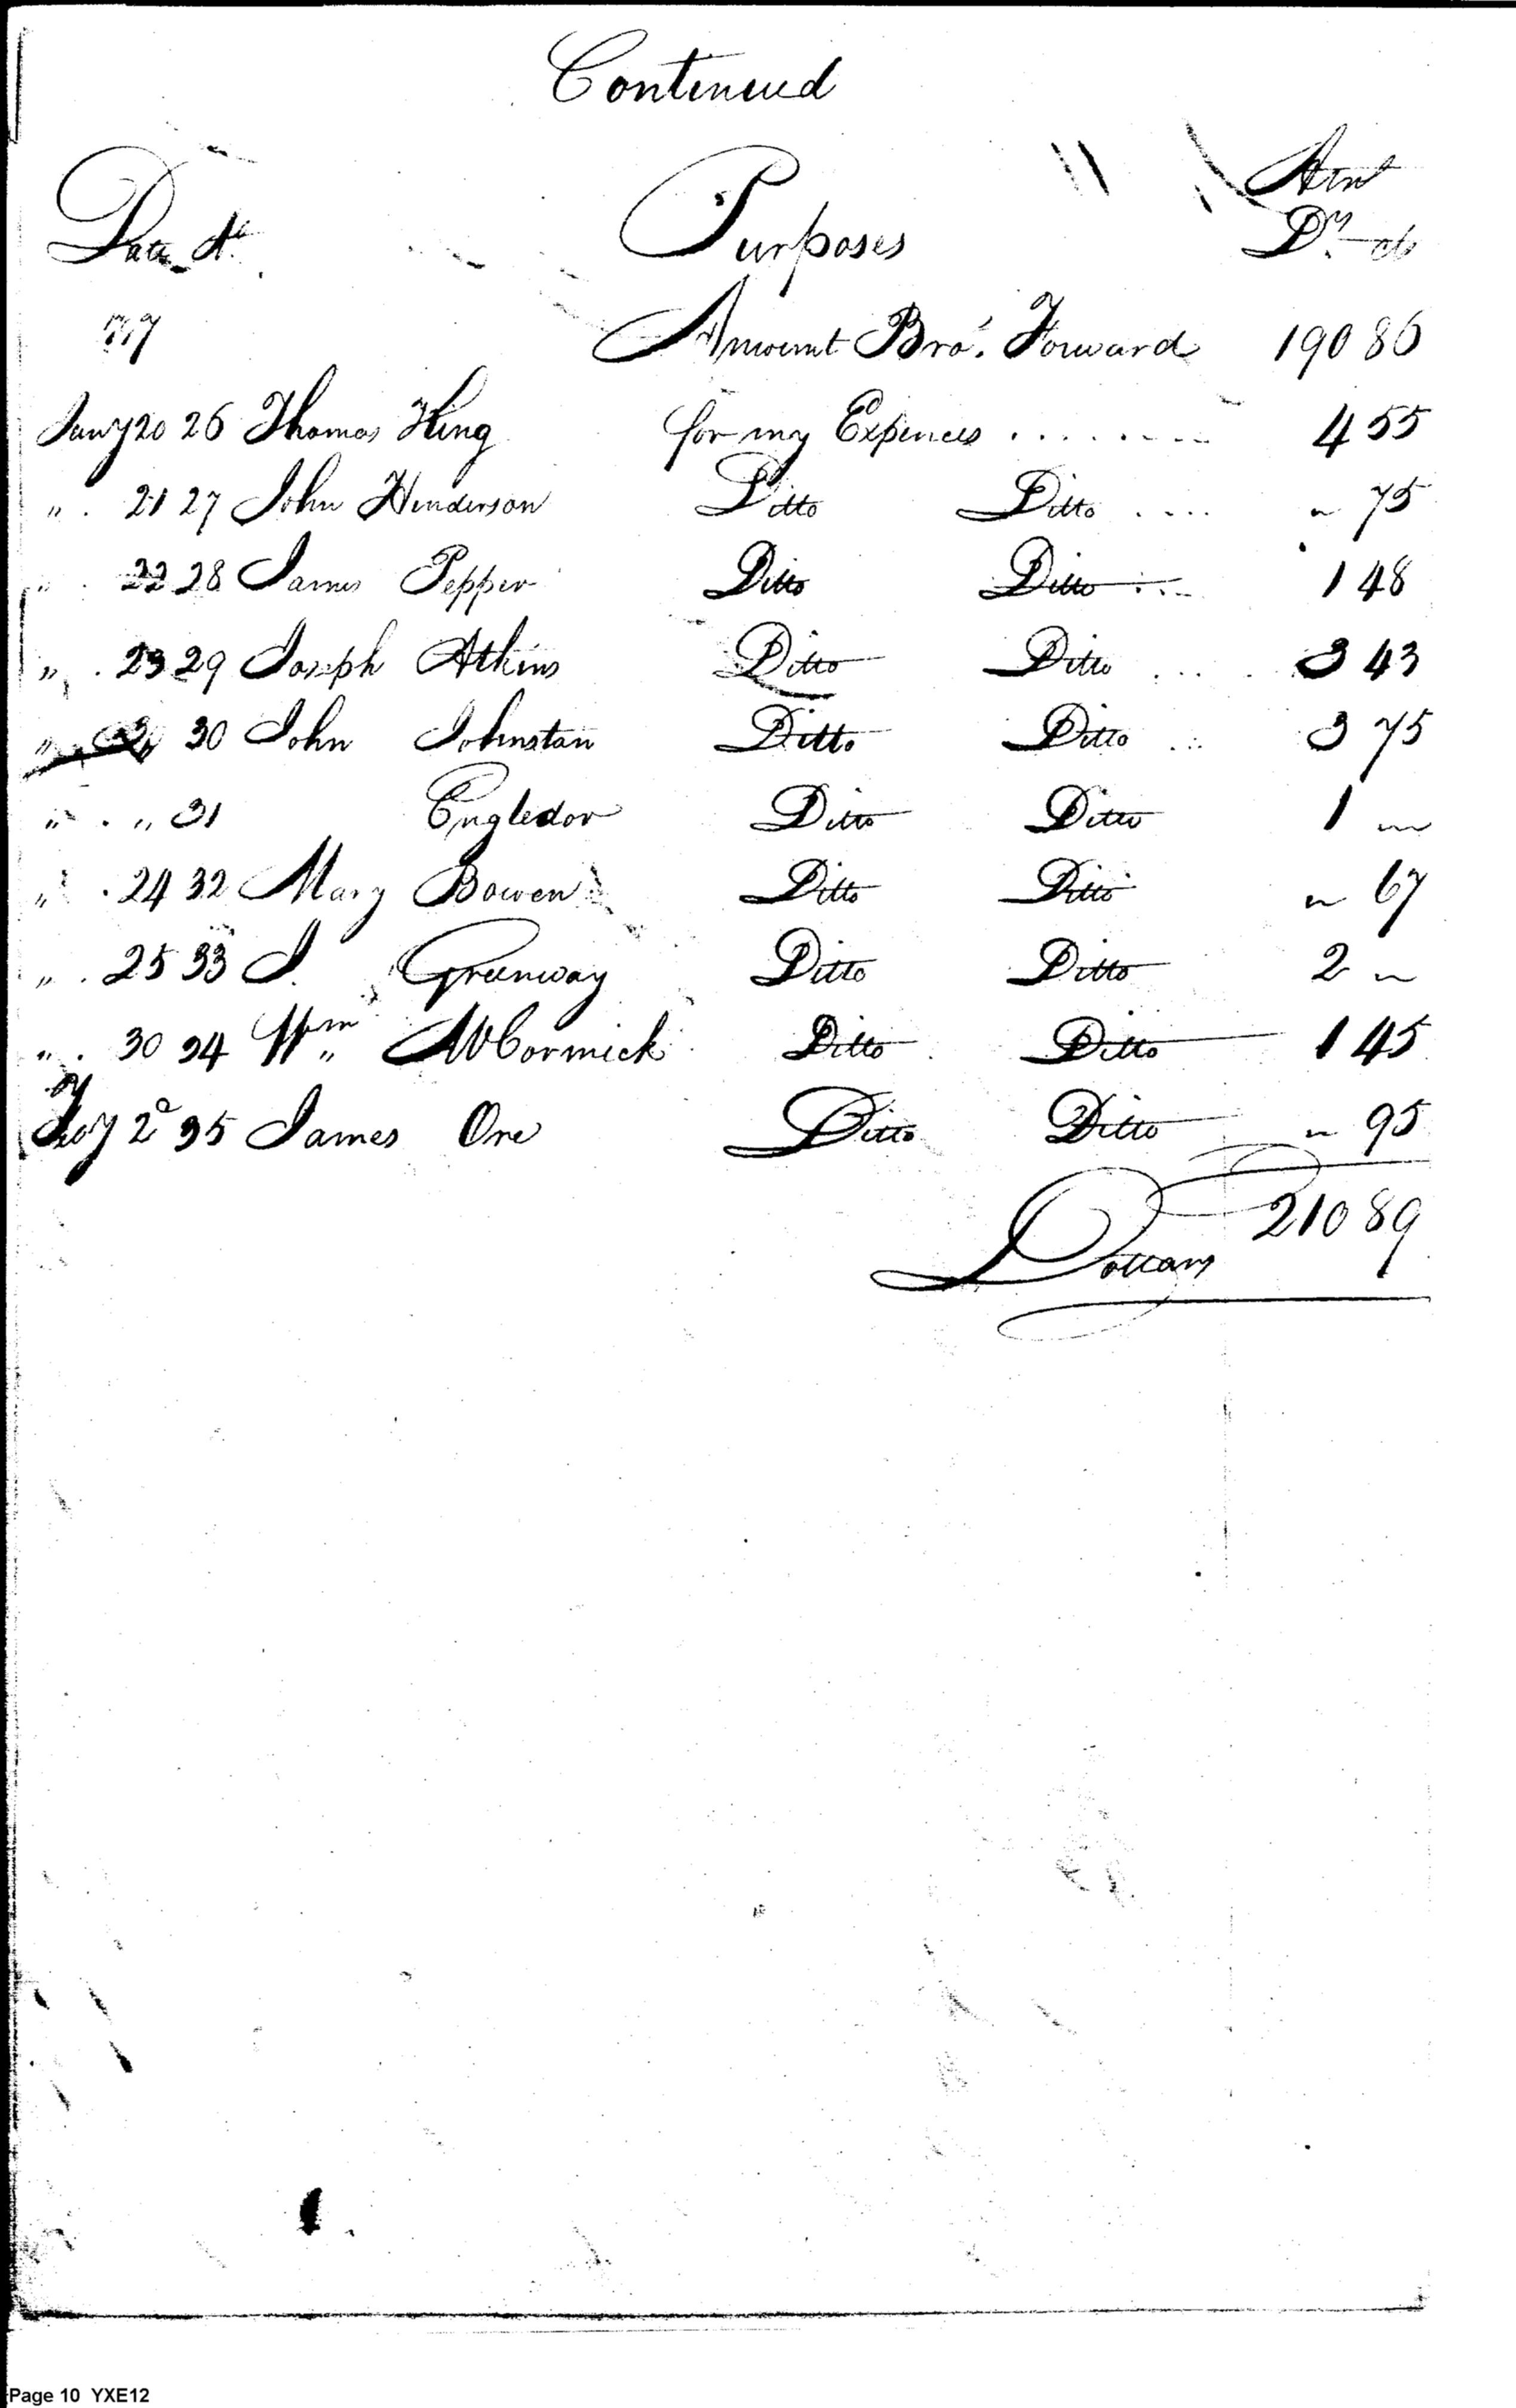 Continued
Amt
Date No. Purposes Drs cts
Amount Bro.t Forward 190 86
Jany 20 26 Thomas King for my Expences ........ 4 55
" . 21 27 John Henderson Ditto Ditto .... " 75
" . 22 28 James Pepper Ditto Ditto .... 1 48
" . 23 29 Joseph Atkins Ditto Ditto .... 3 43
" 30 John Johnstan Ditto Ditto ... 3 75
" . " 31 Engledov Ditto Ditto 1 "
" . 24 32 Mary Bowen Ditto Ditto " 67
" . 25 33 J. Greenway Ditto Ditto 2 "
" . 30 34 Wm McCormick Ditto Ditto 1 45
Feby 2d 35 James Ore Ditto Ditto " 95
Dollars 210 89
Page 10 YXE12